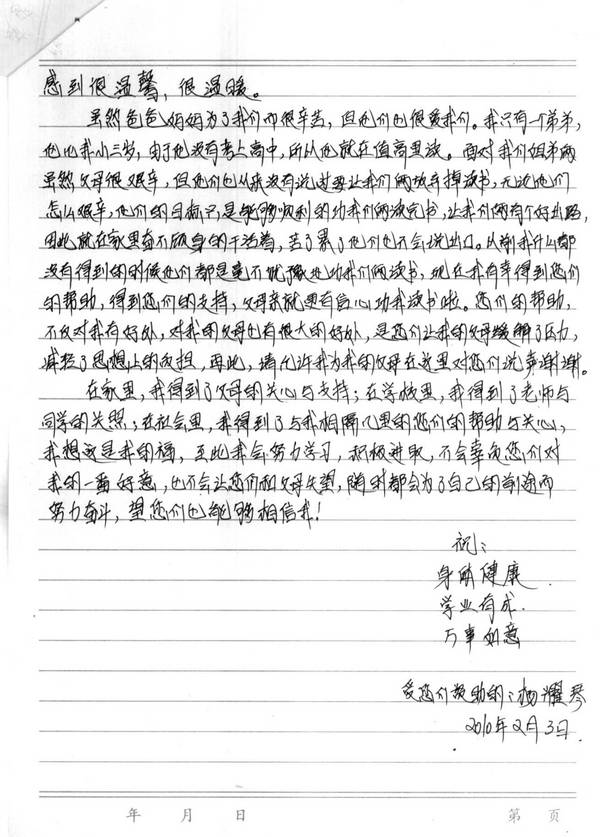 感到很温馨，很温暖。
虽然爸爸妈妈为了我们而很辛苦，但他们也很爱我们。我只有一个弟弟，
他比我小三岁，由于他没有考上高中，所以他就在值高里读。面对我们姐弟两
虽然父母很艰辛，但他们也从来没有说过要让我们两放弃掉读书，无论他们
怎么艰辛，他们的目标只是能够顺利的功我们两读完书，让我们两有个好出路，
因此就在家里奋不顾身的干活着，苦了累了他们也不会说出口。从前我什么都
没有得到的时候他们都是毫不犹豫地功我们两读书，现在我有幸得到您们
的帮助，得到您们的支持，父母亲就更有信心功我读书啦。您们的帮助，
不仅对我有好处，对我的父母也有很大的好处，是您们让我的父母缓解了压力，
减轻了思想上的负担，再此，请允许我为我的父母在这里对您们说声谢谢。
在家里，我得到了父母的关心与支持；在学校里，我得到了老师与
同学的关照；在社会里，我得到了与我相隔几里的您们的帮助与关心，
我想这是我的福，至此我会努力学习，积极进取，不会辜负您们对
我的一番好意，也不会让您们和父母失望，随时都会为了自己的前途而
努力奋斗，望您们也能够相信我！
祝：
身体健康
学业有成
万事如意
受您们资助的：杨耀琴
2010年2月3日
年 月 日 第 页